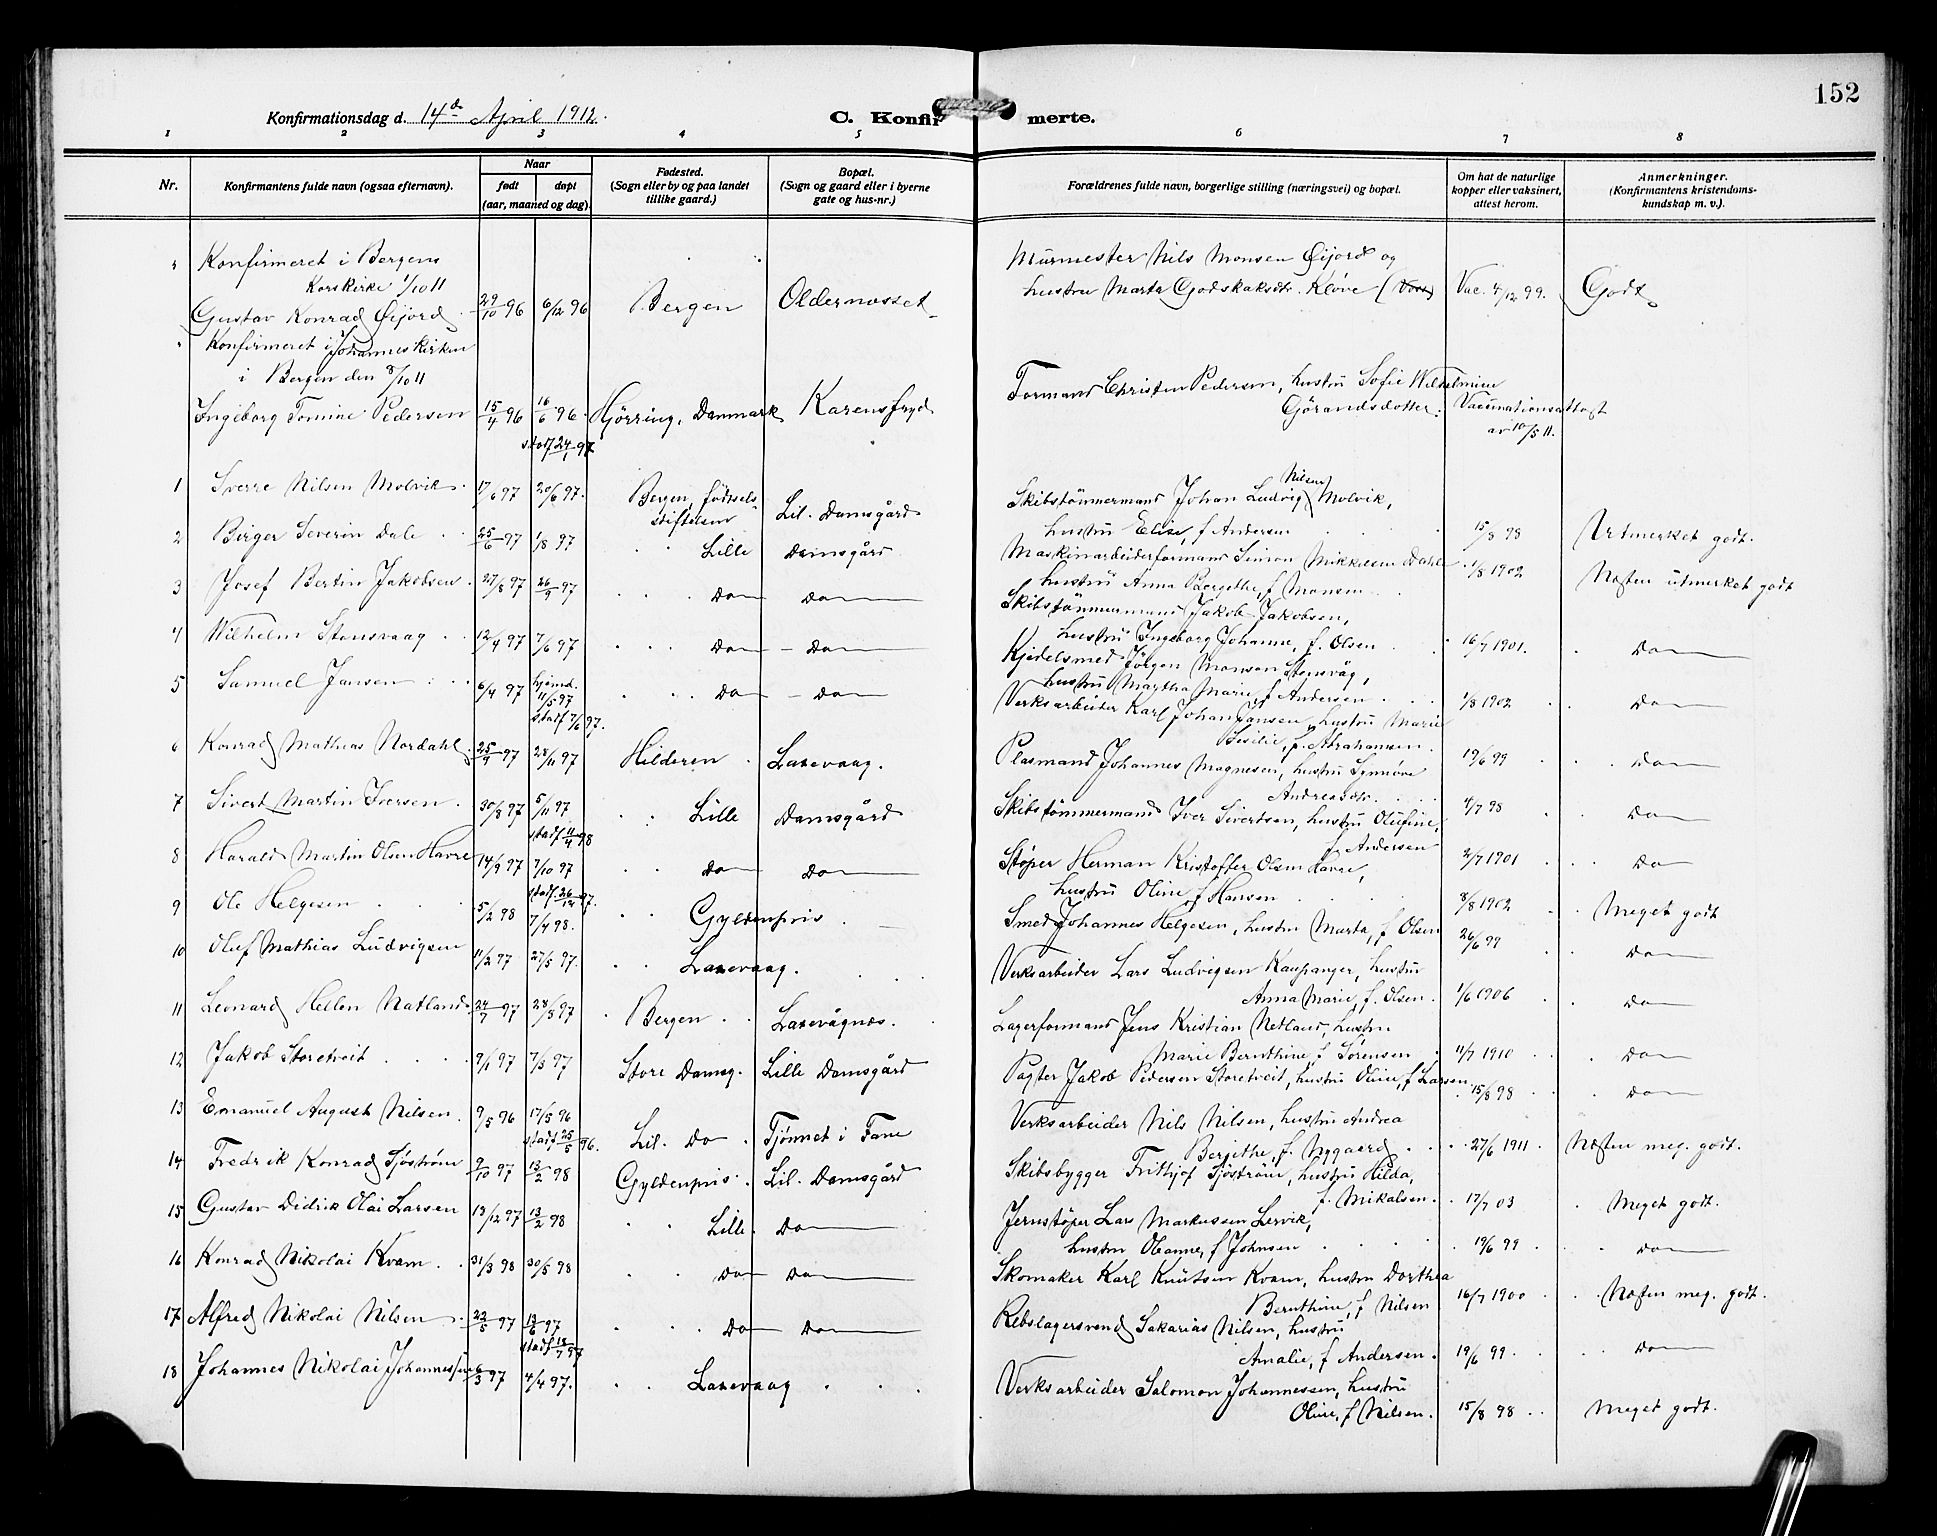 152
Konfirmationsdag d. 14de April 1912.
C. Konfirmerte.
1 2 3 4 5 6 7 8
Nr. Konfirmantens fulde navn (ogsaa efternavn). Naar født døpt (aar, maaned og dag). Fødested. (Sogn eller by og paa landet tillike gaard.) Bopæl. (Sogn og gaard eller i byerne gate og hus-nr.) Forældrenes fulde navn, borgerlige stilling (næringsvei) og bopæl. Om hat de naturlige kopper eller vaksinert, attest herom. Anmerkninger. (Konfirmantens kristendoms-kundskap m. v.)
" Konfirmeret i Bergens
Korskirke 1/10 11
Gustav Konrad Øijord 29/10 96 6/12 96 Bergen Oldernesset Murmester Nils Monsen Øijord og
hustru Marta Godskaksdtr. Kløve (Voss) Vac. 4/12 99. Godt
" Konfirmeret i Johanneskirken
i Bergen den 8/10 11
Ingeborg Tomine Pedersen 15/4 96 16/6 96. Hjørring, Danmark Karensfryd Formand Christen Pedersen, hustru Sofie Wilhelmine
Görandsdotter. Vaccinationsattest
av 10/5 11.
stadf 24/1 97
1 Sverre Nilsen Molvik. 17/6 97 20/6 97. Bergen, fødsels-
stiftelsen Lil. Damsgård Skibstömmermand Johan Ludvig Nilsen Molvik,
hustru Elise, f Andersen 15/8 98 Utmerket godt.
2 Birger Severin Dale 25/6 97 1/8 97 Lille Damsgård Maskinarbeiderformand Simon Mikkelsen Dahle
hustru Anna Bergithe, f Monsen 1/8 1902 Næsten utmerket godt
3 Josef Bertin Jakobsen. 27/8 97 26/9 97 Do Do Skibstömmermand Jakob Jakobsen,
hustru Ingeborg Johanne, f. Olsen 16/7 1901. Do
4 Wilhelm Stensvaag 12/4 97 7/6 97 Do Do Kjedelsmed Jörgen Monsen Stensvåg,
hustru Martha Marie f Andersen 1/8 1902 Do
5 Samuel Jansen 6/4 97 hjemd. 11/5 97
stadf 7/6 97. Do Do Verksarbeider Karl Johan Jansen, hustru Marie
Sesilie, f. Abrahamsen. 19/6 99 Do
6 Konrad Mathias Nordahl. 25/9 97 28/11 97 Hilderen Laxevaag. Plasmand Johannes Magnesen, hustru Synnöve
Andreasdtr. 4/7 98 Do
7 Sivert Martin Iversen. 30/8 97 5/11 97
stadf 11/4 98 Lille Damsgård Skibstömmermand Iver Sivertsen, hustru Olufine,
f. Andersen 2/7 1901 Do
8 Harald Martin Olsen Havre 14/9 97 7/10 97
stadf 26/12 97. Do Do Støper Herman Kristoffer Olsen Havre,
hustru Oline, f Hansen 8/8 1902 Meget godt
9 Ole Helgesen 5/2 98 7/4 98. Gyldenpris Smed Johannes Helgesen, hustru Marta, f Olsen 26/6 99 Do
10 Oluf Mathias Ludvigsen 11/2 97 27/5 97. Laxevaag. Verksarbeider Lars Ludvigsen Kaupanger, hustru
Anna Marie, f. Olsen. 1/6 1906 Do
11 Leonard Hellen Natland 24/7 97 28/8 97 Bergen Laxevågnes. Lagerformand Jens Kristian Netland, hustru
Marie Bernthine f Sørensen 11/7 1910 Do
12 Jakob Storetveit 9/1 97 7/3 97 Store Damsg. Lille Damsgård Pagter Jakob Pedersen Storetveit, hustru Oline, f Larsen 15/8 98 Do
13 Emanuel August Nilsen. 9/5 96 17/5 96
stadf 25/5 96. Lil. Do Tjönnet i Fane Verksarbeider Nils Nilsen, hustru Andrea
Bergithe, f. Nygaard 27/6 1911 Næsten meg. godt.
14 Fredrik Konrad Sjöström 9/10 97 13/2 98 Gyldenpris Lil. Damsgård Skibsbygger Frithjof Sjöström, hustru Hilda,
f. Mikalsen. 17/7 03 Meget godt.
15 Gustav Didrik Olai Larsen 13/12 97 13/2 98 Lille Do Jernstøper Lars Markussen Lervik,
hustru Oleanne, f Johnsen 19/6 99 Do
16 Konrad Nikolai Kvam. 31/3 98 30/5 98 Do Do Skomaker Karl Knutsen Kvam, hustru Dorthea
Bernthine, f Nilsen 16/7 1900 Næsten meg. godt.
17 Alfred Nikolai Nilsen 22/5 97 13/6 97
stadf 13/7 97 Do Do Rebslagersvend Sakarias Nilsen, hustru
Amalie, f Andersen. 19/6 99. Do
18 Johannes Nikolai Johannessen 6/3 97 4/4 97. Laxevaag Verksarbeider Salomon Johannessen, hustru
Oline, f Nilsen. 15/8 98 Meget godt.